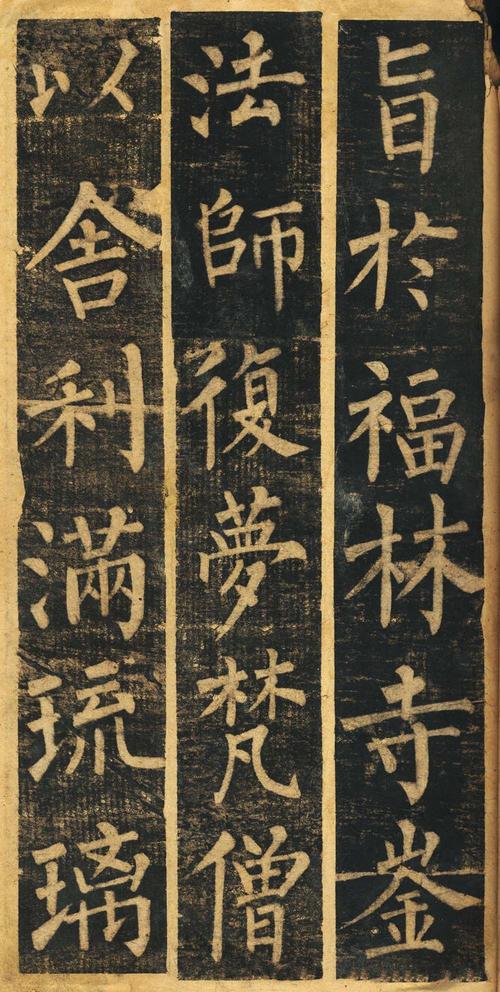 旨於福林寺崟
法師復夢梵僧
以舎利滿琉璃